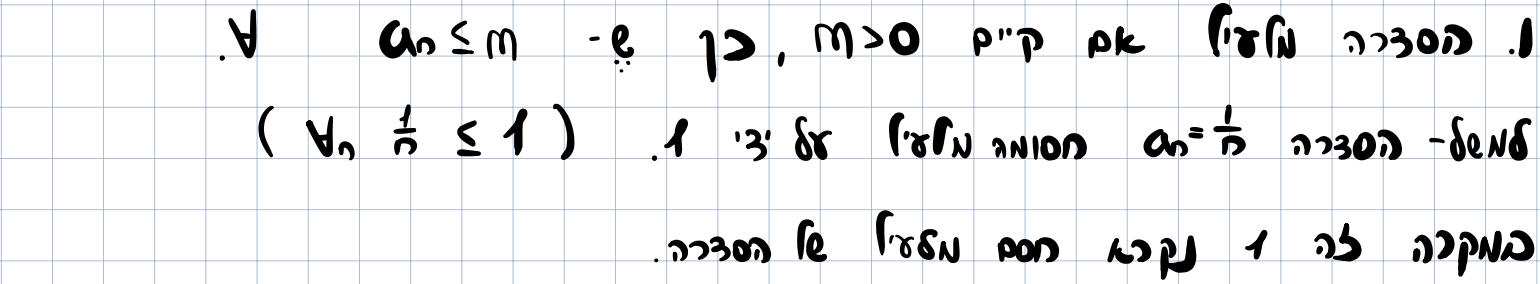 1. הסדרה מלעיל אם קיים m>0, כך ש- aₙ ≤ m ∀.
למשל- הסדרה aₙ=1/n חסומה מלעיל על ידי 1. (∀ₙ 1/n ≤ 1)
במקרה זה 1 נקרא חסם מלעיל של הסדרה.